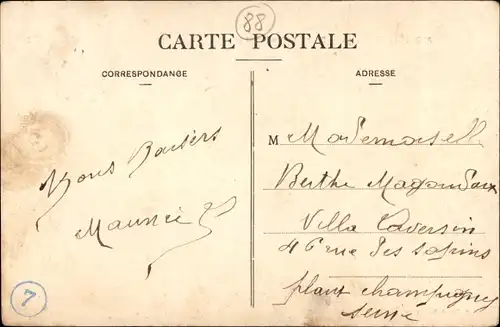 88
CARTE POSTALE
CORRESPONDANCE
ADRESSE
Bons Baisers
Maurice
M Mademoisell
Berthe
Villa Caversin
46 rue des sapins
plant champigny
seine
7